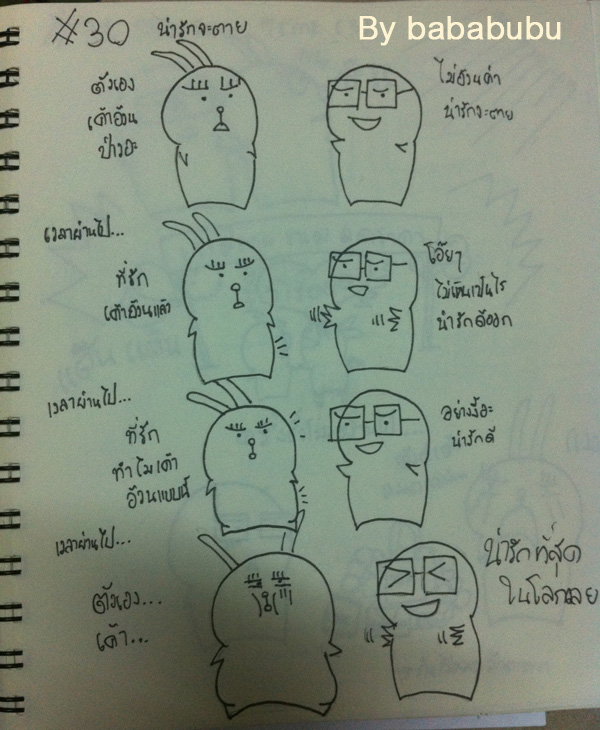 By bababubu
#30 น่ารักจะตาย
ตัวเอง
เค้าอ้วน
ป่าวอะ
ไม่อ้วนค่า
น่ารักจะตาย
เวลาผ่านไป...
ที่รัก
เค้าอ้วนแล้ว
โอ๊ยๆ
ไม่เห็นเป็นไร
น่ารักดีออก
เวลาผ่านไป...
ที่รัก
ทำไมเค้า
อ้วนแบบนี้
อย่างงี้อะ
น่ารักดี
เวลาผ่านไป...
ตัวเอง...
เค้า...
น่ารักที่สุด
ในโลกเลย